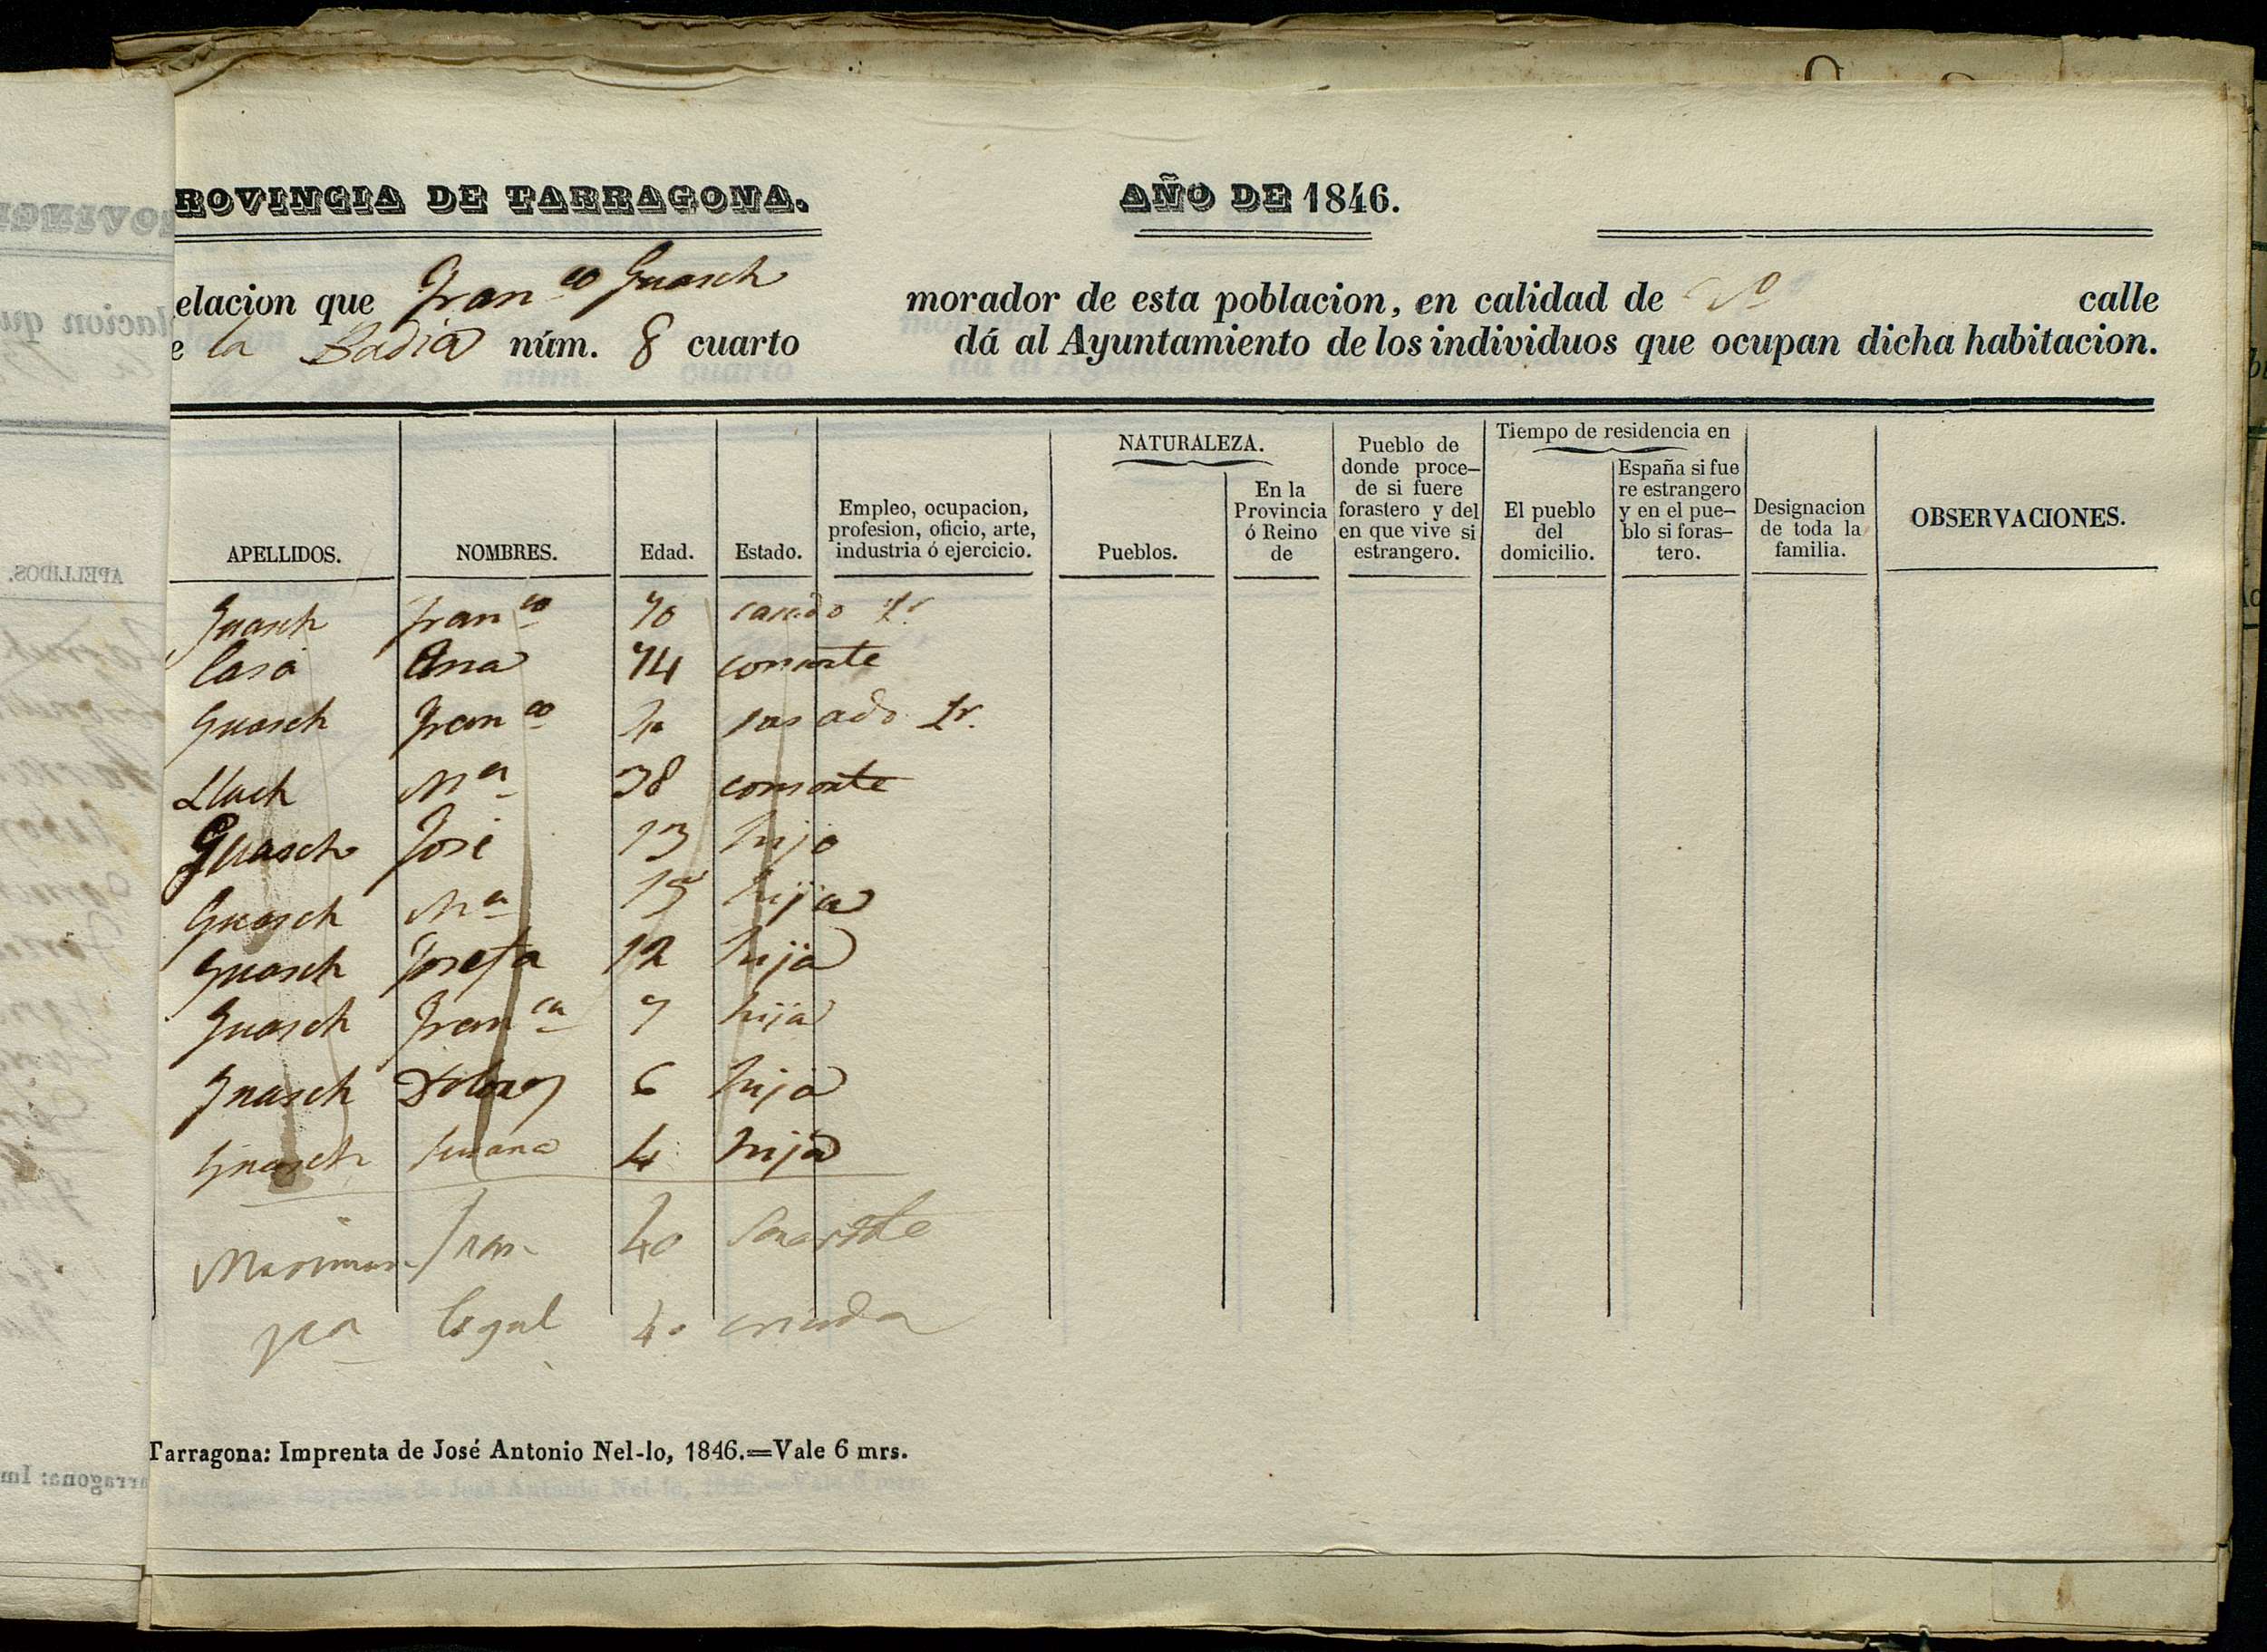 ROVINCIA DE TARRAGONA. AÑO DE 1846.
elacion que Fran.co Guasch morador de esta poblacion, en calidad de calle
e la Badia núm. 8 cuarto dá al Ayuntamiento de los individuos que ocupan dicha habitacion.
APELLIDOS. NOMBRES. Edad. Estado. Empleo, ocupacion, profesion, oficio, arte, industria ó ejercicio. NATURALEZA. Pueblos. En la Provincia ó Reino de Pueblo de donde proce- de si fuere forastero y del en que vive si estrangero. Tiempo de residencia en El pueblo del domicilio. España si fue re estrangero y en el pue- blo si foras- tero. Designacion de toda la familia. OBSERVACIONES.
Guasch Fran.co 70 casado tr.
Casa Ana 74 consorte
Guasch Fran.co casado tr.
Lluch Ma 38 consorte
Guasch José 13 hijo
Guasch Ma 15 hija
Guasch Josefa 12 hija
Guasch Fran.ca 7 hija
Guasch Dolores 6 hija
Guasch 4 hija
Fran 40
40 criada
Tarragona: Imprenta de José Antonio Nel-lo, 1846.=Vale 6 mrs.